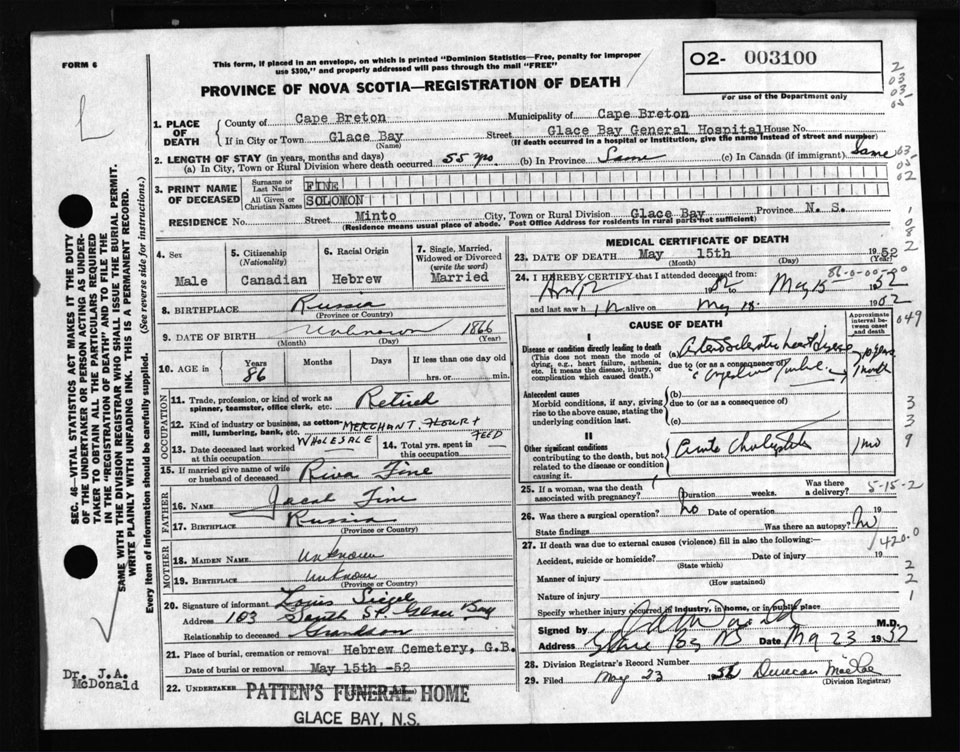 FORM 6
This form, if placed in an envelope, on which is printed "Dominion Statistics—Free, penalty for improper
use $300," and properly addressed will pass through the mail "FREE"
O2- 003100
For use of the Department only
PROVINCE OF NOVA SCOTIA—REGISTRATION OF DEATH
1. PLACE OF DEATH
County of Cape Breton Municipality of Cape Breton
If in City or Town Glace Bay Street Glace Bay General Hospital House No.
(Name) (If death occurred in a hospital or institution, give the name instead of street and number)
2. LENGTH OF STAY (in years, months and days)
(a) In City, Town or Rural Division where death occurred 55 yrs (b) In Province Same (c) In Canada (if immigrant) Same
3. PRINT NAME OF DECEASED
Surname or Last Name FINE
All Given or Christian Names SOLOMON
RESIDENCE No. Street Minto City, Town or Rural Division Glace Bay Province N. S.
(Residence means usual place of abode. Post Office Address for residents in rural parts not sufficient)
4. Sex
Male
5. Citizenship
(Nationality)
Canadian
6. Racial Origin
Hebrew
7. Single, Married, Widowed or Divorced
(write the word)
Married
8. BIRTHPLACE Russia
(Province or Country)
9. DATE OF BIRTH Unknown 1866
(Month) (Day) (Year)
10. AGE in
Years 86 Months Days If less than one day old
hrs. or min.
OCCUPATION
11. Trade, profession, or kind of work as
spinner, teamster, office clerk, etc. Retired
12. Kind of industry or business, as cotton
mill, lumbering, bank, etc. MERCHANT FLOUR + FEED
WHOLESALE
13. Date deceased last worked
at this occupation
14. Total yrs. spent in
this occupation
15. If married give name of wife
or husband of deceased Riva Fine
FATHER
16. NAME Jacob Fine
17. BIRTHPLACE Russia
(Province or Country)
MOTHER
18. MAIDEN NAME. Unknown
19. BIRTHPLACE Unknown
(Province or Country)
20. Signature of informant Louis Siegel
Address 103 South St. Glace Bay
Relationship to deceased Grandson
21. Place of burial, cremation or removal Hebrew Cemetery, G.B.
Date of burial or removal May 15th -52
22. UNDERTAKER PATTEN'S FUNERAL HOME
GLACE BAY, N.S.
MEDICAL CERTIFICATE OF DEATH
23. DATE OF DEATH May 15th 1952
(Month) (Day) (Year)
24. I HEREBY CERTIFY that I attended deceased from:
May 15 1952
and last saw him alive on May 15 1952
CAUSE OF DEATH
Approximate interval between onset and death
I
Disease or condition directly leading to death
(This does not mean the mode of
dying, e.g., heart failure, asthenia,
etc. It means the disease, injury, or
complication which caused death.)
(a) Arteriosclerotic heart disease 10 years
due to (or as a consequence of)
1 month
Antecedent causes
Morbid conditions, if any, giving
rise to the above cause, stating the
underlying condition last.
(b)
due to (or as a consequence of)
(c)
II
Other significant conditions
contributing to the death, but not
related to the disease or condition
causing it.
Acute 1 mo
25. If a woman, was the death
associated with pregnancy? Duration weeks. Was there a delivery?
5-15-2
26. Was there a surgical operation? no Date of operation 19
State findings Was there an autopsy? no
27. If death was due to external causes (violence) fill in also the following:—
420.0
Accident, suicide or homicide? Date of injury 19
(State which)
Manner of injury
(How sustained)
Nature of injury
Specify whether injury occurred in industry, in home, or in public place
Signed by M.D.
Address Glace Bay NS Date May 23 1952
28. Division Registrar's Record Number
29. Filed May 23 1952 Duncan MacRae
(Division Registrar)
SEC. 46—VITAL STATISTICS ACT MAKES IT THE DUTY
OF THE UNDERTAKER OR PERSON ACTING AS UNDER-
TAKER TO OBTAIN ALL THE PARTICULARS REQUIRED
IN THE "REGISTRATION OF DEATH" AND TO FILE THE
SAME WITH THE DIVISION REGISTRAR WHO SHALL ISSUE THE BURIAL PERMIT.
WRITE PLAINLY WITH UNFADING INK. THIS IS A PERMANENT RECORD.
Every item of information should be carefully supplied. (See reverse side for instructions.)
Dr. J.A.
McDonald